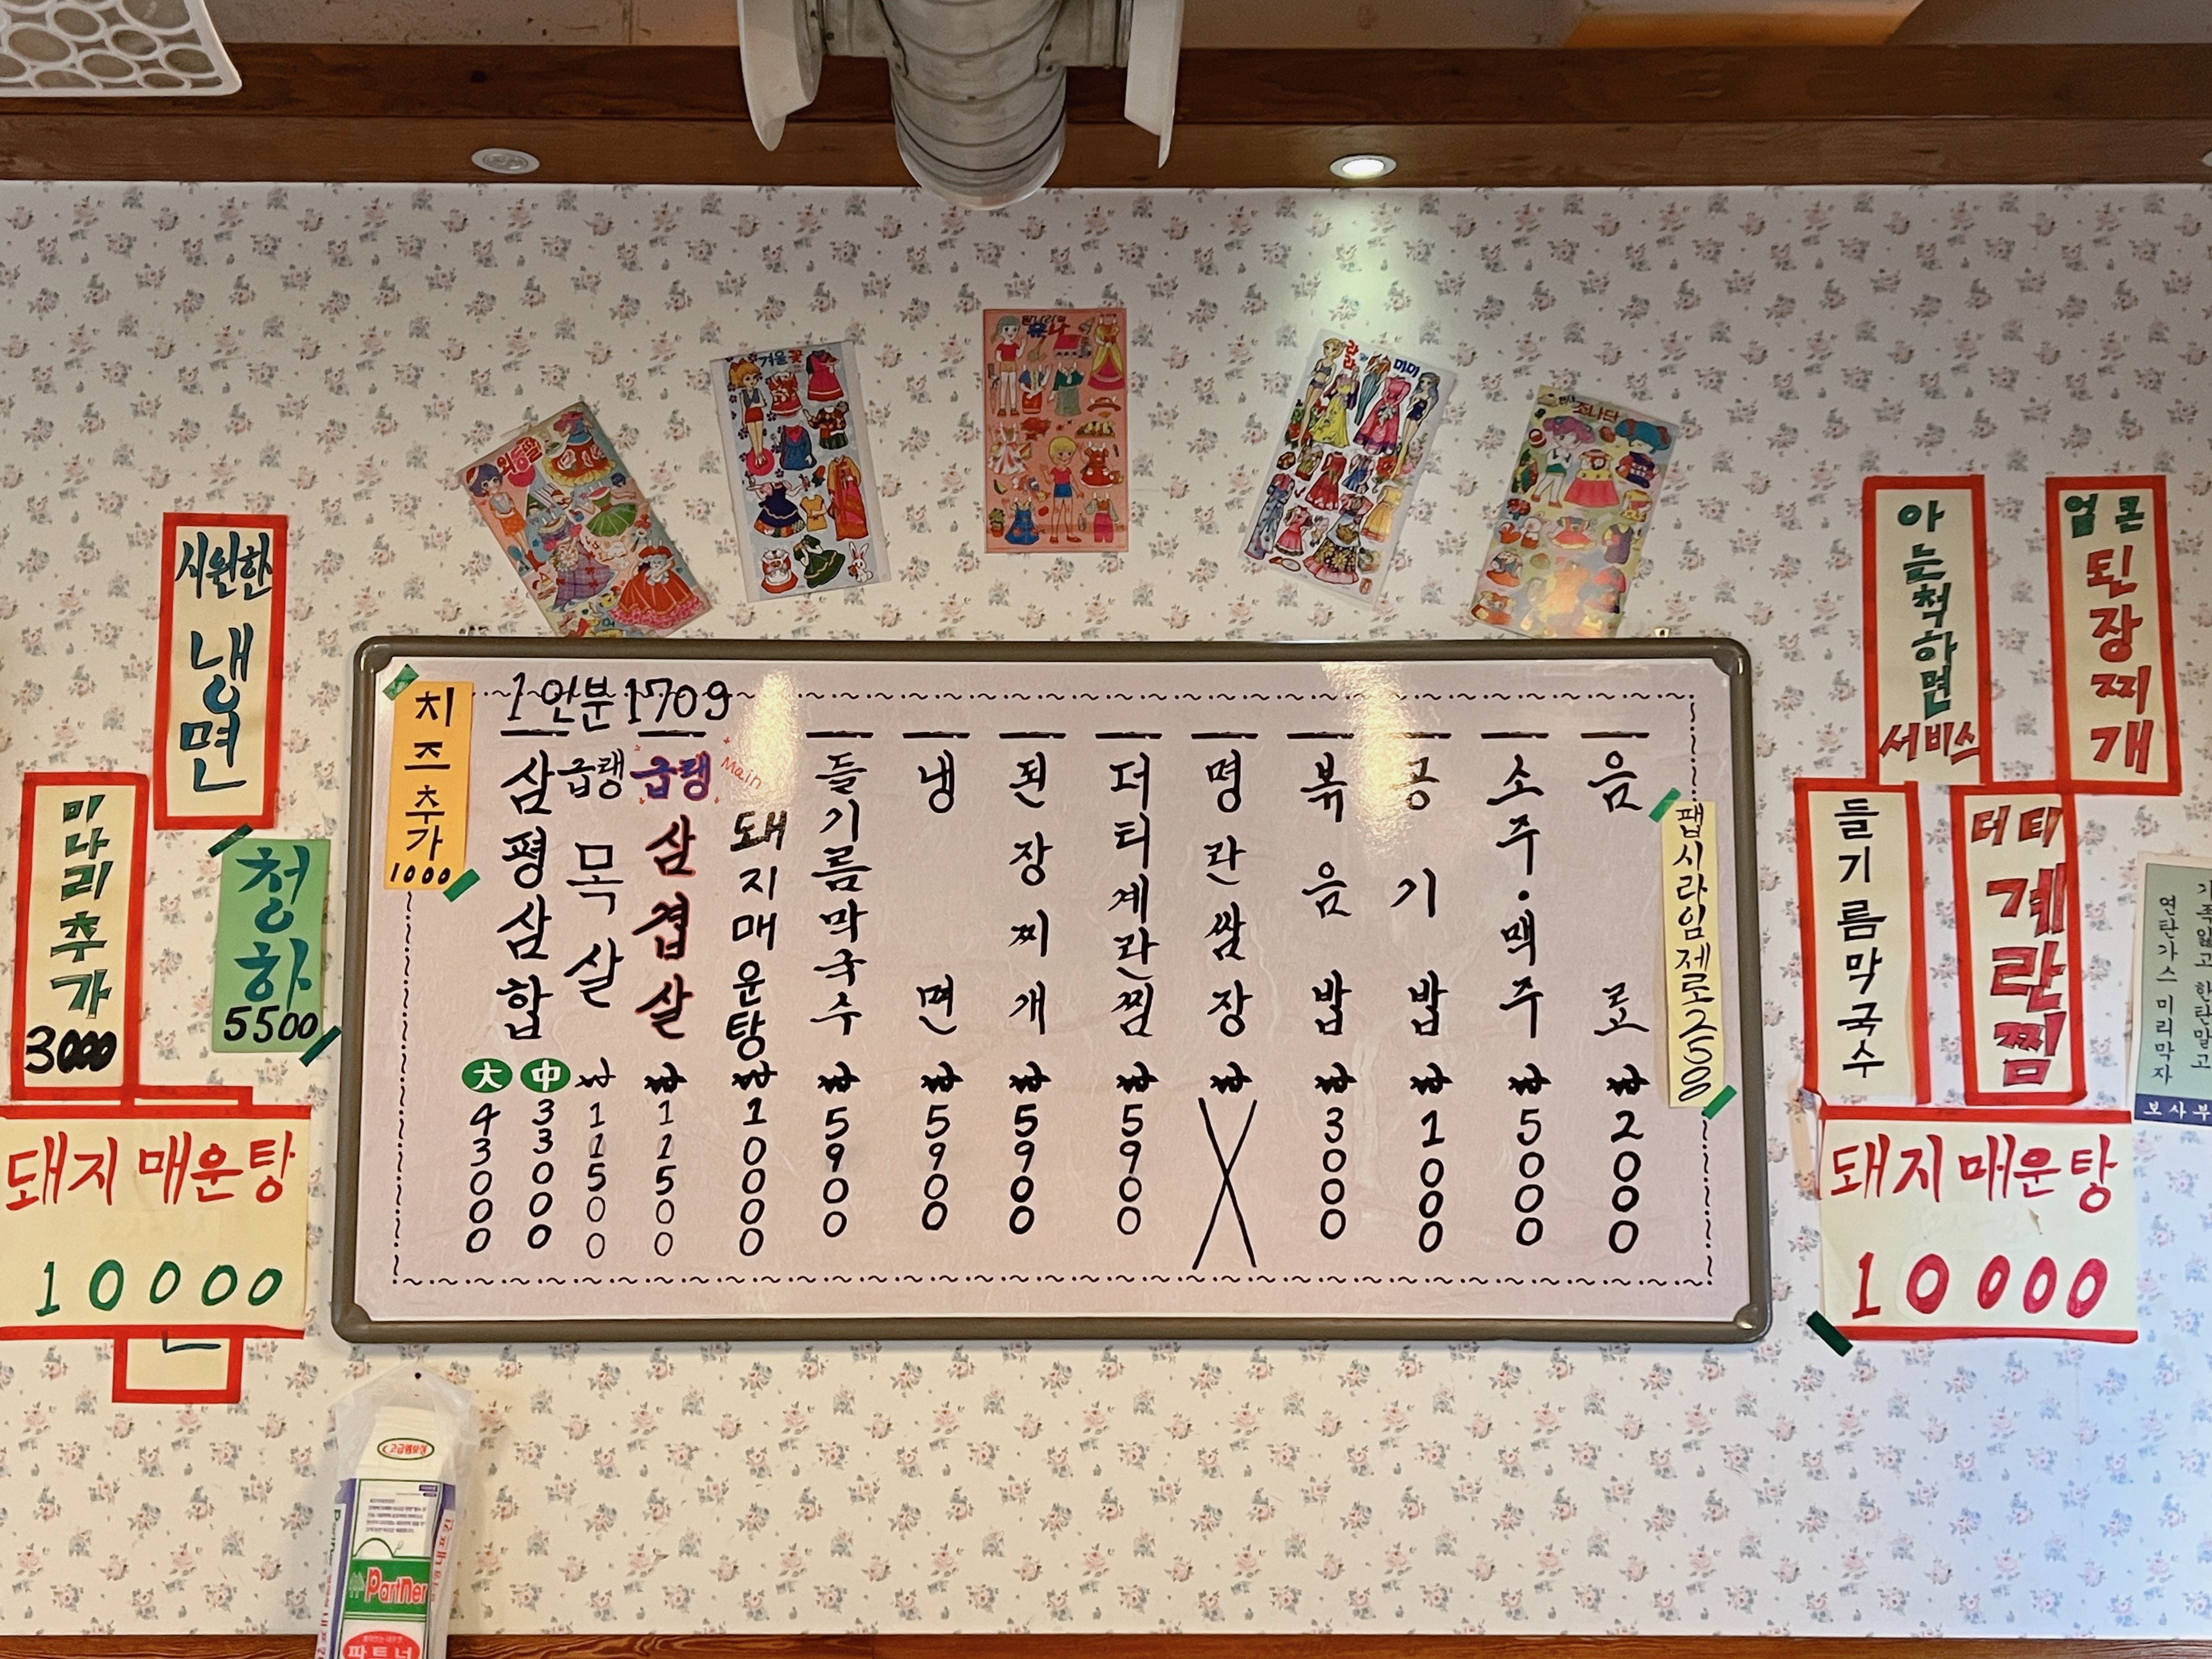 외동딸
겨울꽃
유나
라라와 미미
조나단
시원한
냉면
미나리추가
3000
청하
5500
돼지 매운탕
10000
치즈추가
1000
1인분 170g
삼평삼합 大 43000 中 33000
급랭 목살 ₩ 11500
급랭 삼겹살 ₩ 11500
Main
돼지매운탕 ₩ 10000
들기름막국수 ₩ 5900
냉면 ₩ 5900
된장찌개 ₩ 5900
더티계란찜 ₩ 5900
명란쌈장 ₩ X
볶음밥 ₩ 3000
공기밥 ₩ 1000
소주·맥주 ₩ 5000
음료 ₩ 2000
팹시라임제로 2500
아는척하면
서비스
얼큰
된장찌개
들기름막국수
더티
계란찜
돼지 매운탕
10000
연탄가스 미리막자
보사부
Partner
파트너